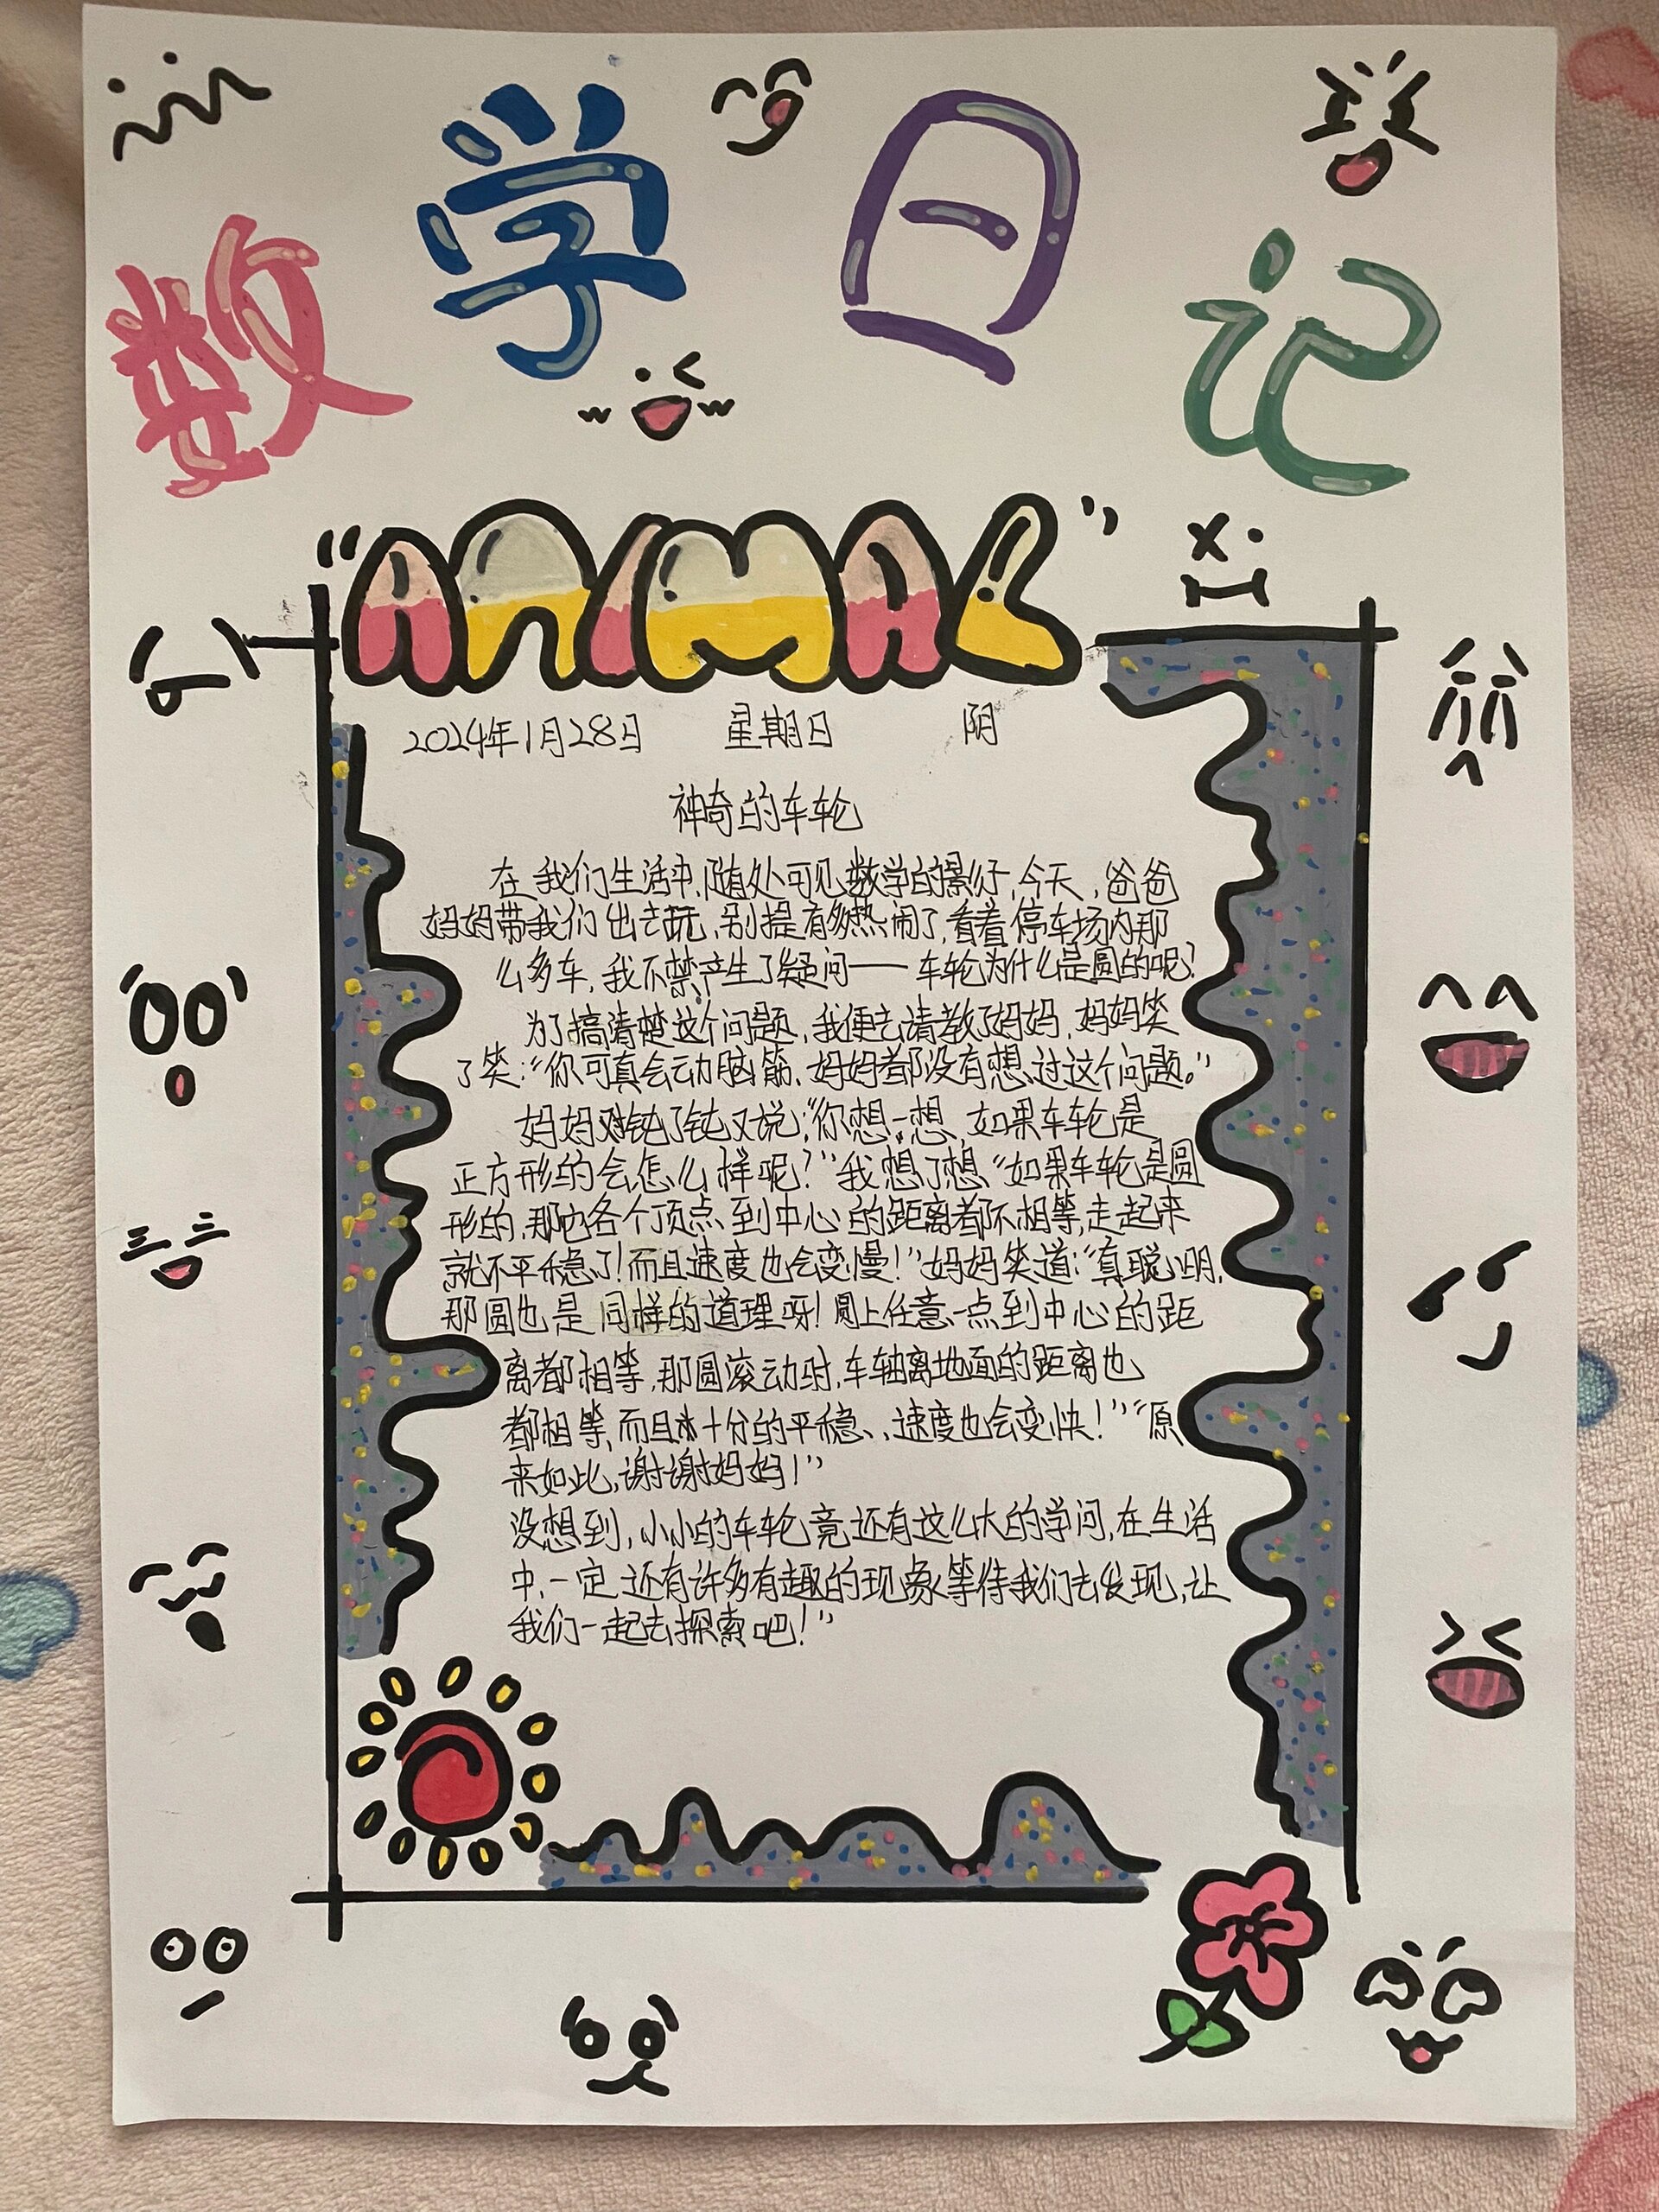 数学日记
“ANIMAL”
2024年1月28日 星期日 阴
神奇的车轮
在我们生活中,随处可见数学的影子,今天,爸爸
妈妈带我们出去玩,别提有多热闹了,看着停车场内那
么多车,我不禁产生了疑问——车轮为什么是圆的呢?
为了搞清楚这个问题,我便去请教了妈妈,妈妈笑
了笑:“你可真会动脑筋,妈妈都没有想过这个问题。”
妈妈顿了顿又说:“你想一想,如果车轮是
正方形的会怎么样呢?”我想了想“如果车轮是圆
形的,那它各个顶点到中心的距离都不相等,走起来
就不平稳了!而且速度也会变慢!”妈妈笑道:“真聪明,
那圆也是同样的道理呀!圆上任意一点到中心的距
离都相等,那圆滚动时,车轴离地面的距离也
都相等,而且十分的平稳、速度也会变快!”“原
来如此,谢谢妈妈!”
没想到,小小的车轮竟还有这么大的学问,在生活
中,一定还有许多有趣的现象等待我们去发现,让
我们一起去探索吧!”